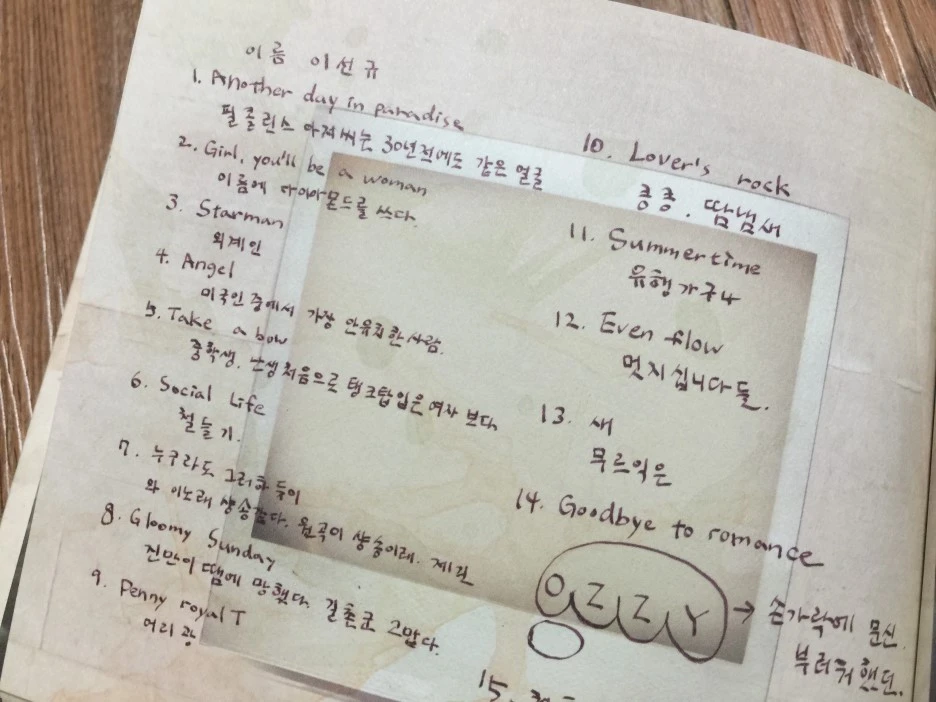 이름 이선규
1. Another day in paradise
필 콜린스 아저씨는 30년전에도 같은 얼굴
2. Girl, you'll be a woman
이름에 다이아몬드를 쓰다.
3. Starman
외계인
4. Angel
미국인 중에서 가장 안유치한 사람.
5. Take a bow
중학생. 난생처음으로 탱크탑입은 여자 보다.
6. Social Life
철들기.
7. 누구라도 그러하듯이
와 이노래 샹송같다. 원곡이 샹송이래.
8. Gloomy Sunday
진만이 땜에 망쳤다. 결혼군 고맙다.
9. Penny royal T
어리광
10. Lover's rock
킁킁. 땀냄새
11. Summertime
유행가구나
12. Even flow
멋지십니다들.
13. 새
무르익은
14. Goodbye to romance
OZZY → 손가락에 문신.
부러워했던.
15.